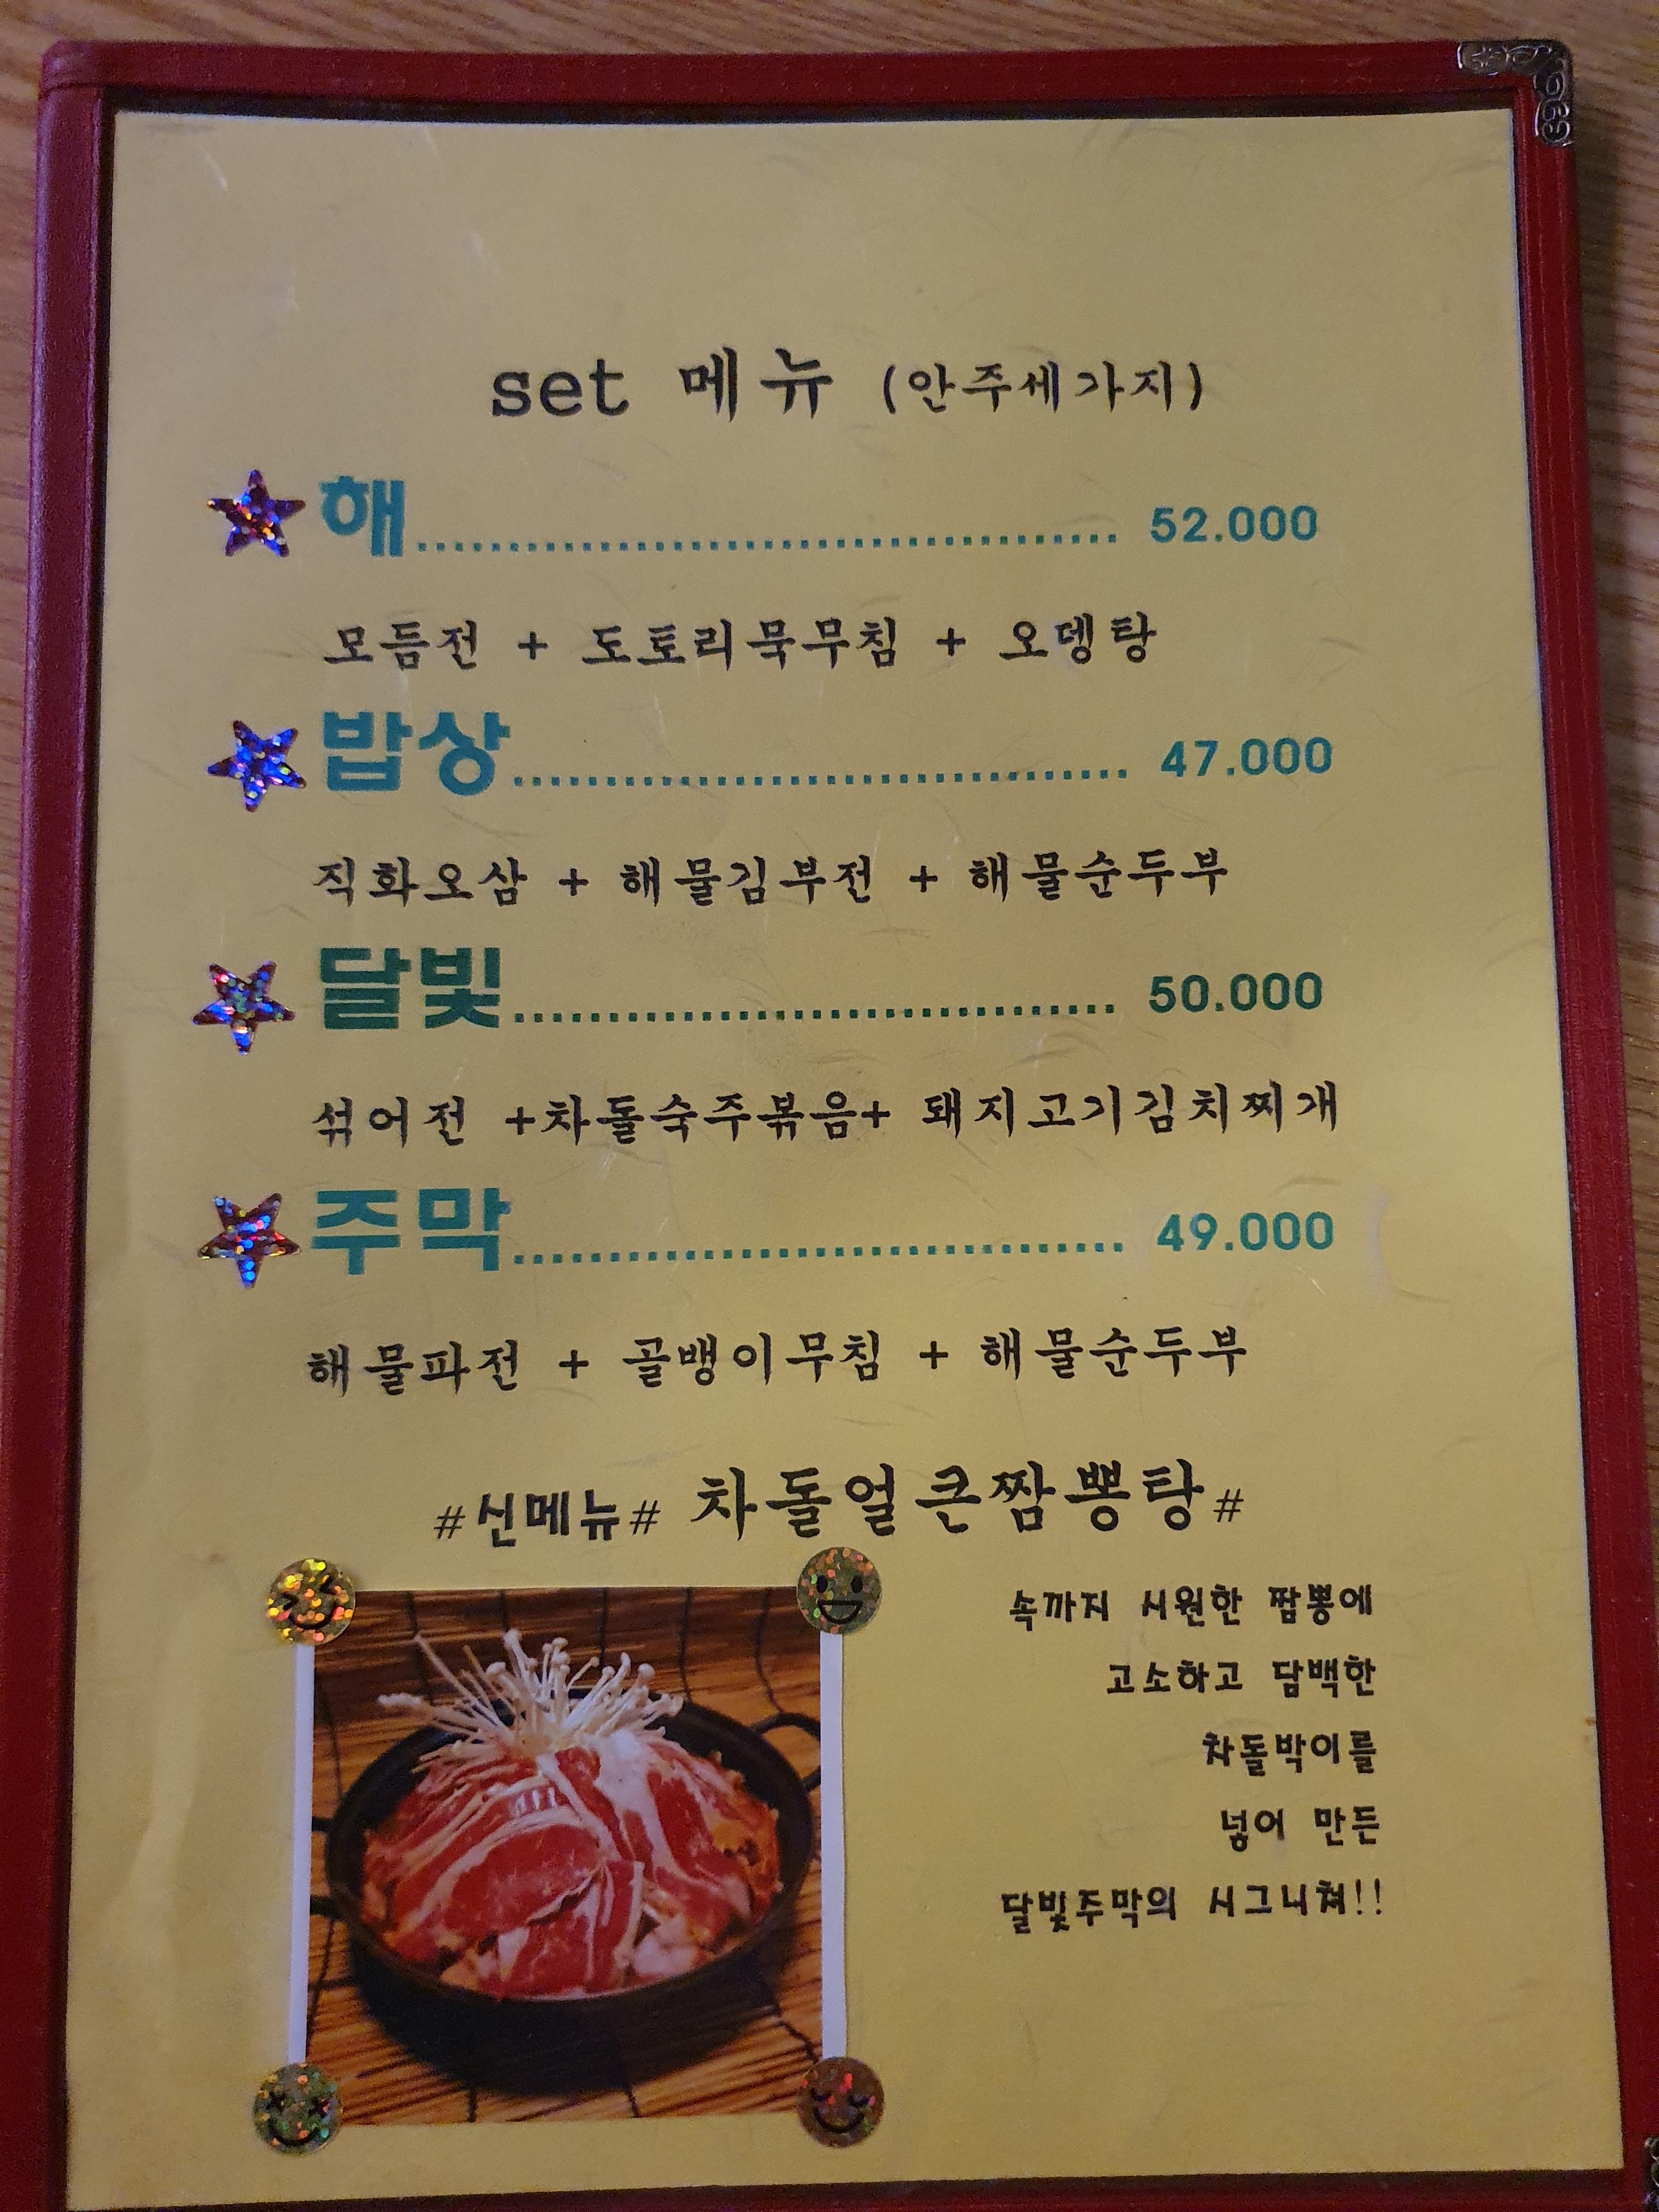 set 메뉴 (안주세가지)
해.................................................. 52.000
모듬전 + 도토리묵무침 + 오뎅탕
밥상.......................................... 47.000
직화오삼 + 해물김부전 + 해물순두부
달빛.......................................... 50.000
섞어전 +차돌숙주볶음+ 돼지고기김치찌개
주막.......................................... 49.000
해물파전 + 골뱅이무침 + 해물순두부
#신메뉴# 차돌얼큰짬뽕탕#
속까지 시원한 짬뽕에
고소하고 담백한
차돌박이를
넣어 만든
달빛주막의 시그니쳐!!